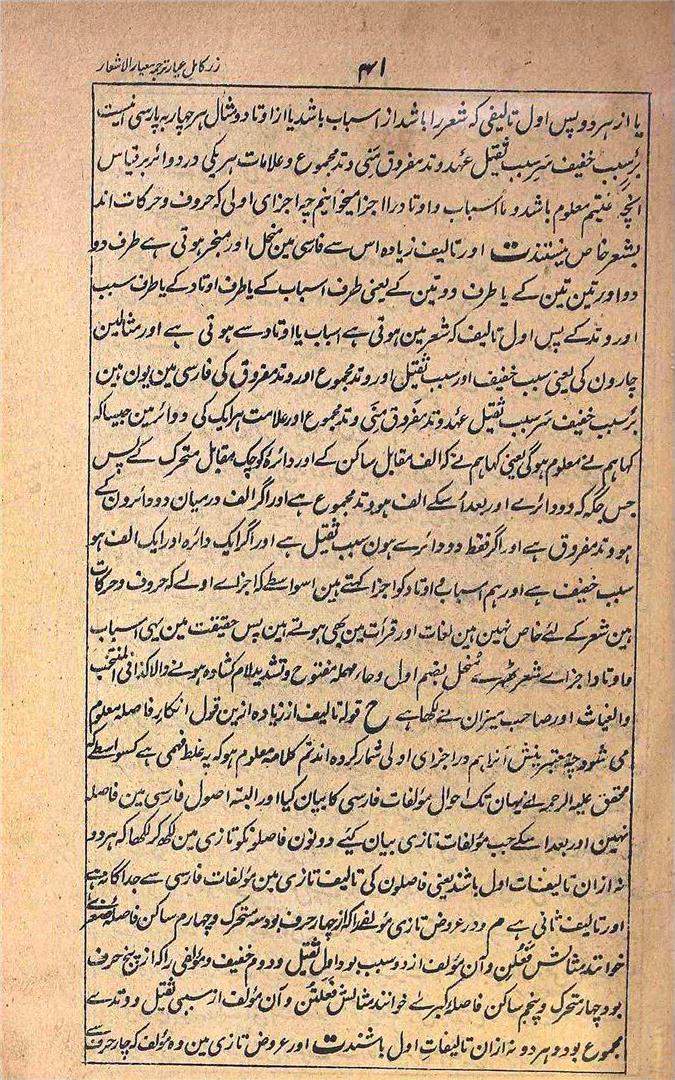 زر کامل عیار ترجمہ معیار الاشعار
۴۱
یا از هر دو پس اول تالیفی که شعر را باشد از اسباب باشد یا از اوتاد و مثال هر چهار به پارسی اینست
بُر سبب خفیف سَرِ سبب ثقیل عهد وتد مفروق سَنَی وتد مجموع و علامات هر یکی در دوائر بر قیاس
انچه غنیتم معلوم باشد و ما اسباب و اوتاد را اجزا میخوانیم چه اجزای اولی که حروف و حرکات اند
بشعر خاص نیستند ت اور تالیف زیادہ اس سے فارسی مین منحل اور منجر ہوتی ہے طرف دو
دو اور تین تین کے یا طرف دو و تین کے یعنی طرف اسباب کے یا طرف اوتاد کے یا طرف سبب
اور وتد کے پس اول تالیف کہ شعر مین ہوتی ہے اسباب یا اوتاد سے ہوتی ہے اور مثالین
چارون کی یعنی سبب خفیف اور سبب ثقیل اور وتد مجموع اور وتد مفروق کی فارسی مین یون ہین
بُر سبب خفیف سَرِ سبب ثقیل عہد وتد مفروق سَنَی وتد مجموع اور علامت ہر ایک کی دوائر مین جیسا کہ
کہا ہم نے معلوم ہوگی یعنی کہا ہم نے کہ الف مقابل ساکن کے اور دائرۂ کوچک مقابل متحرک کے پس
جس جگہ کہ دو دائرے اور بعد اُسکے الف ہو وتد مجموع ہے اور اگر الف درمیان دو دائرون کے
ہو وتد مفروق ہے اور اگر فقط دو دائرے ہون سبب ثقیل ہے اور اگر ایک دائرہ اور ایک الف ہو
سبب خفیف ہے اور ہم اسباب و اوتاد کو اجزا کہتے ہین اسواسطے کہ اجزاے اولے کہ حروف و حرکات
ہین شعر کے لئے خاص نہین ہین لغات اور قرأت مین بھی ہوتے ہین پس حقیقت مین یہی اسباب
و اوتاد اجزاے شعر ٹھہرے مُنحل بضم اول و حاء مہملہ مفتوح و تشدید لام کشادہ ہونے والا کذا فی المنتخب
والغیاث اور صاحب میزان نے لکھا ہے ح قولہ تالیف از زیادہ ازین قول انکار فاصلہ معلوم
می شود چه معتبرینش آنرا هم در اجزای اولی شمار کرده اند تم کلامہ معلوم ہو کہ یہ غلط فہمی ہے کسواسطے کہ
محقق علیہ الرحمہ نے یہان تک احوال مؤلفات فارسی کا بیان کیا اور البتہ اصول فارسی مین فاصلہ
نہین اور بعد اسکے جب مؤلفات تازی بیان کیئے دونون فاصلونکو تازی مین لکھ کر لکھا کہ هر دو
نه ازان تالیفات اول باشند یعنی فاصلون کی تالیف تازی مین مؤلفات فارسی سے جداگانہ ہے
اور تالیف ثانی ہے م و در عروض تازی مؤلف را که از چهار حرف بود سه متحرک و چهارم ساکن فاصلهٔ صغری
خوانند مثالش فَعَلُن و آن مؤلف از دو سبب بود اول ثقیل و دوم خفیف و مؤلفی را که از پنج حرف
بود چهار متحرک و پنجم ساکن فاصلهٔ کبرے خوانند مثالش فَعَلَتُن و آن مؤلف از سببی ثقیل و وتدے
مجموع بود و هر دو نه ازان تالیفاتِ اول باشند ت اور عروض تازی مین وہ مؤلف کہ چار حرف سے